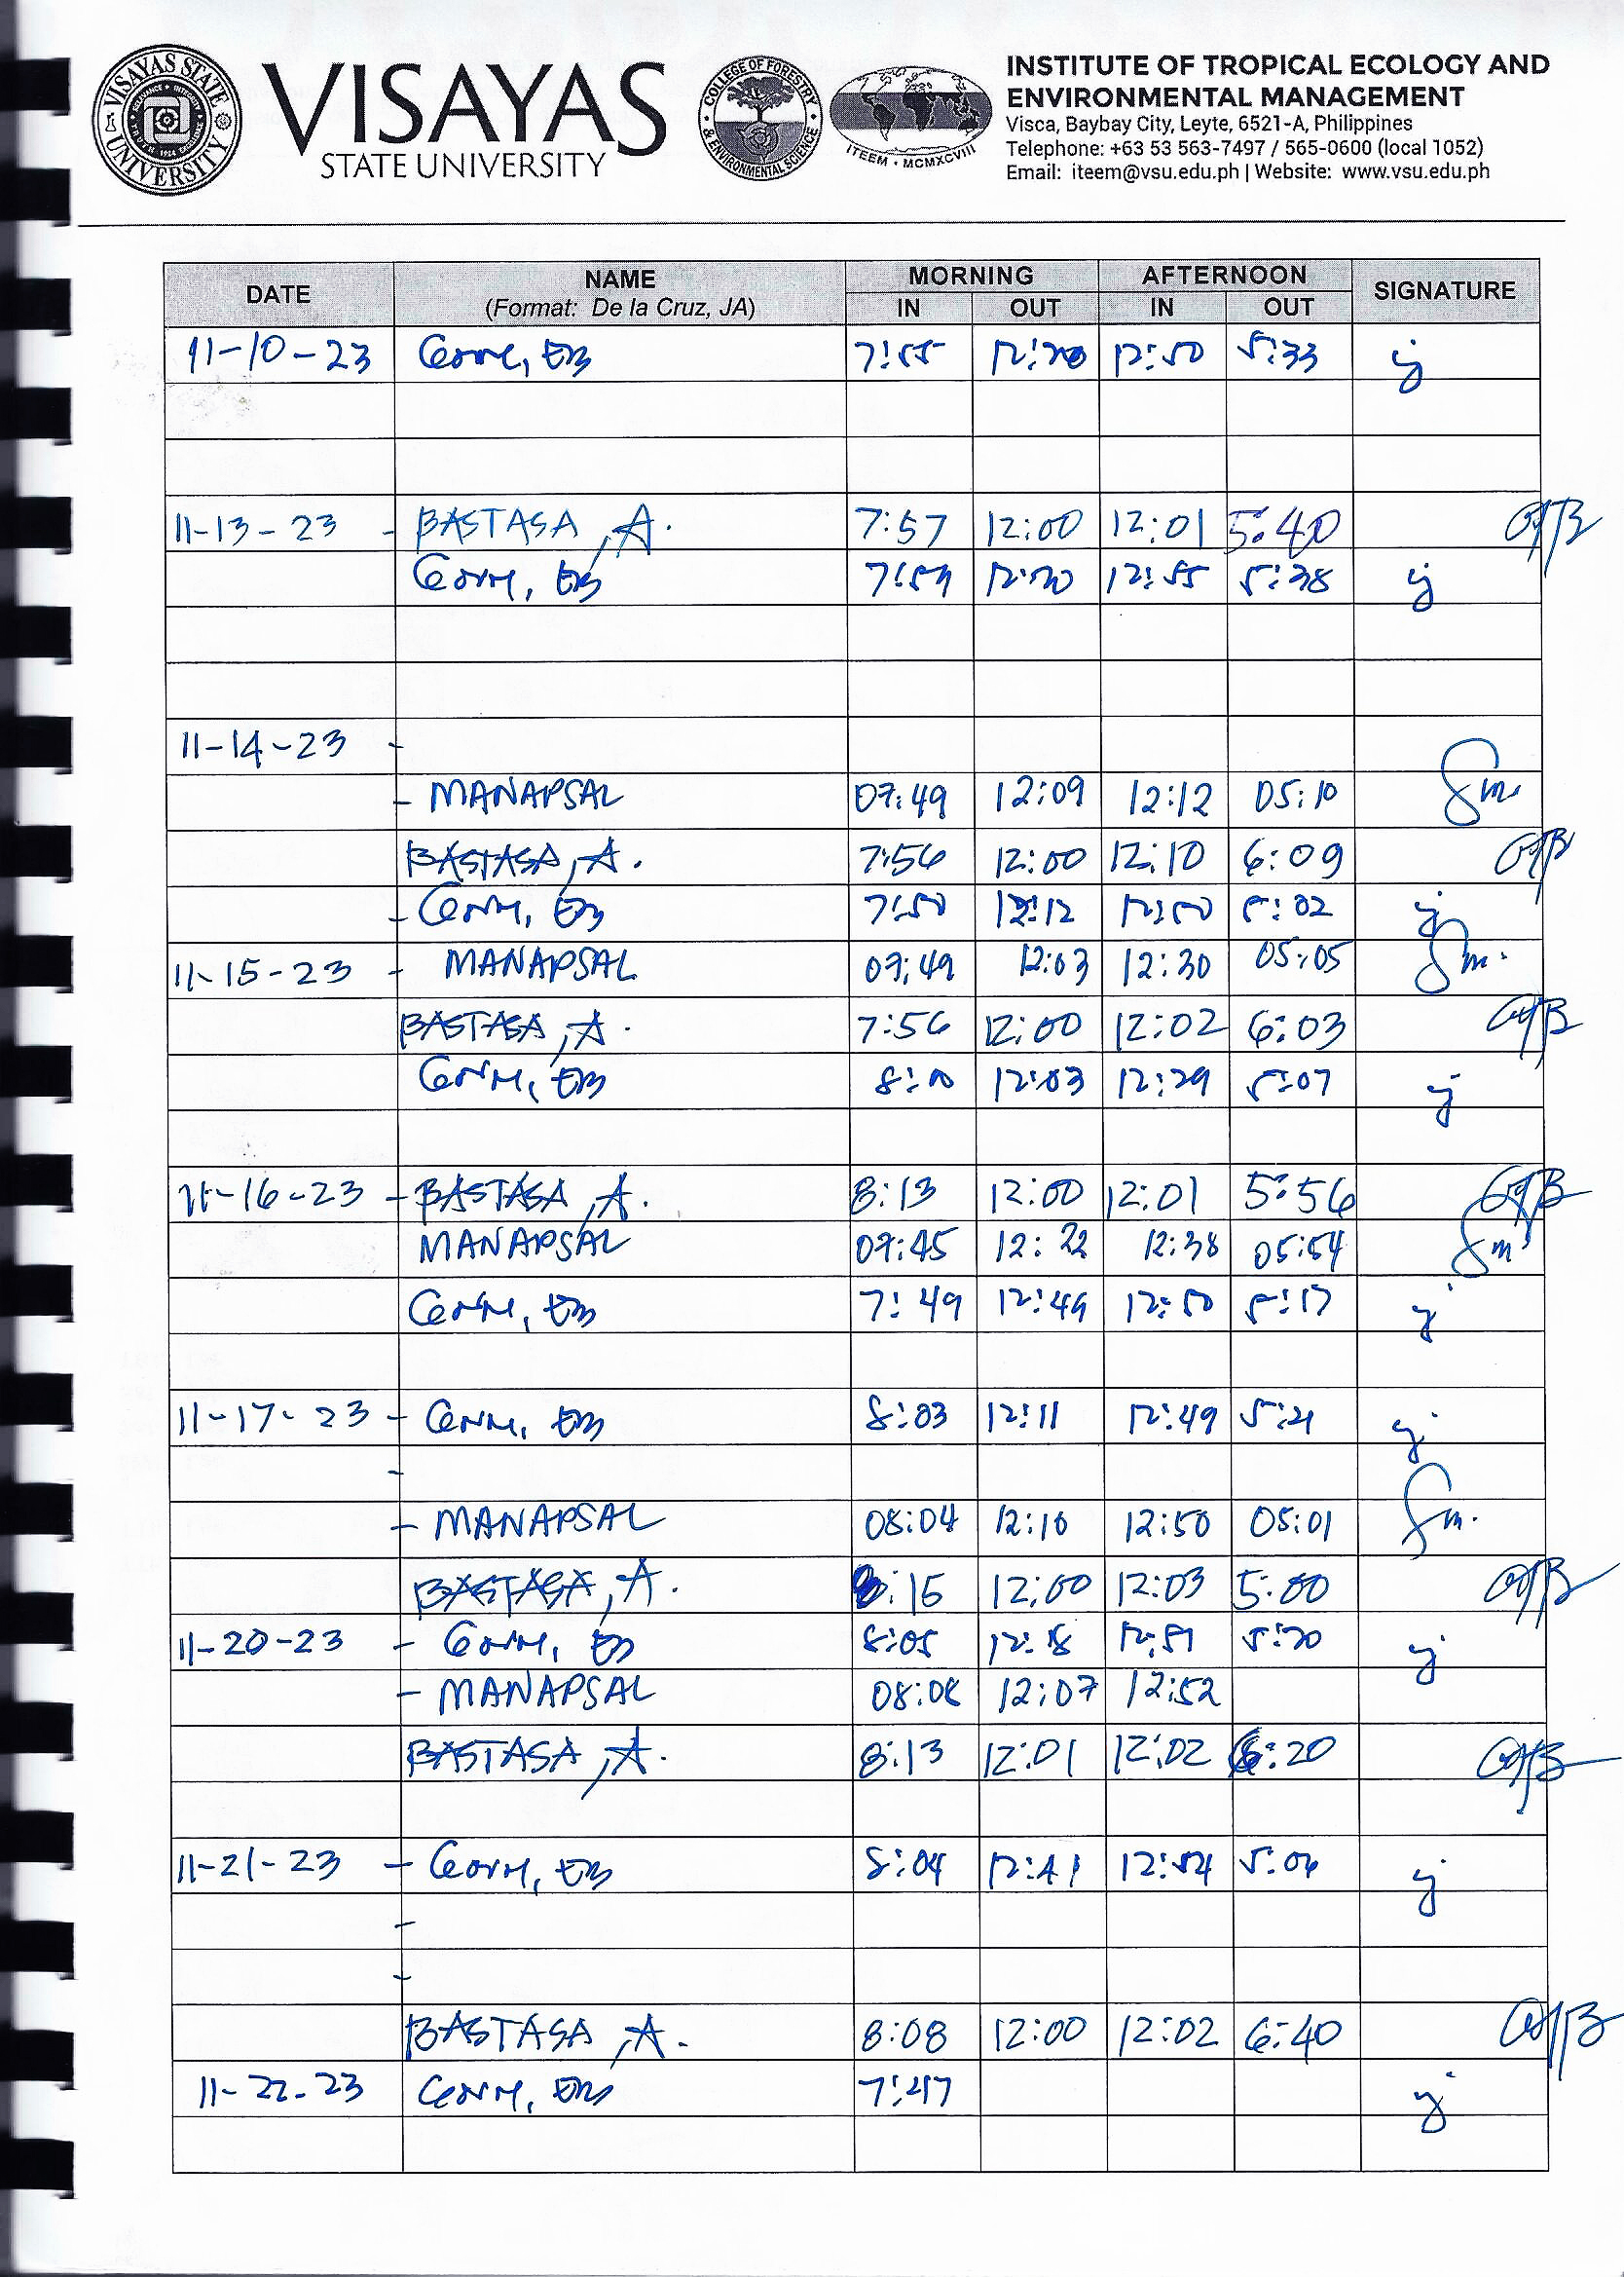 VISAYAS STATE UNIVERSITY
VISAYAS
STATE UNIVERSITY
COLLEGE OF FORESTRY & ENVIRONMENTAL SCIENCE
ITEEM • MCMXCVIII
INSTITUTE OF TROPICAL ECOLOGY AND
ENVIRONMENTAL MANAGEMENT
Visca, Baybay City, Leyte, 6521-A, Philippines
Telephone: +63 53 563-7497 / 565-0600 (local 1052)
Email: iteem@vsu.edu.ph | Website: www.vsu.edu.ph
DATE NAME MORNING AFTERNOON SIGNATURE
(Format: De la Cruz, JA) IN OUT IN OUT
11-10-23 7:55 12:50 5:33
11-13-23 - BASTASA, A. 7:57 12:00 12:01 5:40
12:55 5:38
11-14-23 -
- MANAPSAL 07:49 12:09 12:12 05:10
BASTASA, A. 7:56 12:00 12:10 6:09
7:50 12:12 12:50 5:02
11-15-23 - MANAPSAL 07:49 12:03 12:30 05:05
BASTASA, A. 7:56 12:00 12:02 6:03
12:03 12:29 5:07
11-16-23 - BASTASA, A. 8:13 12:00 12:01 5:56
MANAPSAL 07:45 12:22 12:38 05:54
7:49 12:49 12:50 5:17
11-17-23 - 8:03 12:11 12:49 5:21
-
- MANAPSAL 08:04 12:10 12:50 05:01
BASTASA, A. 8:15 12:00 12:03 5:00
11-20-23 - 8:05 12:18 12:51
- MANAPSAL 08:08 12:07 12:52
BASTASA, A. 8:13 12:01 12:02 6:20
11-21-23 - 8:04 12:41 12:54 5:04
-
-
BASTASA, A. 8:08 12:00 12:02 6:40
11-22-23 7:47